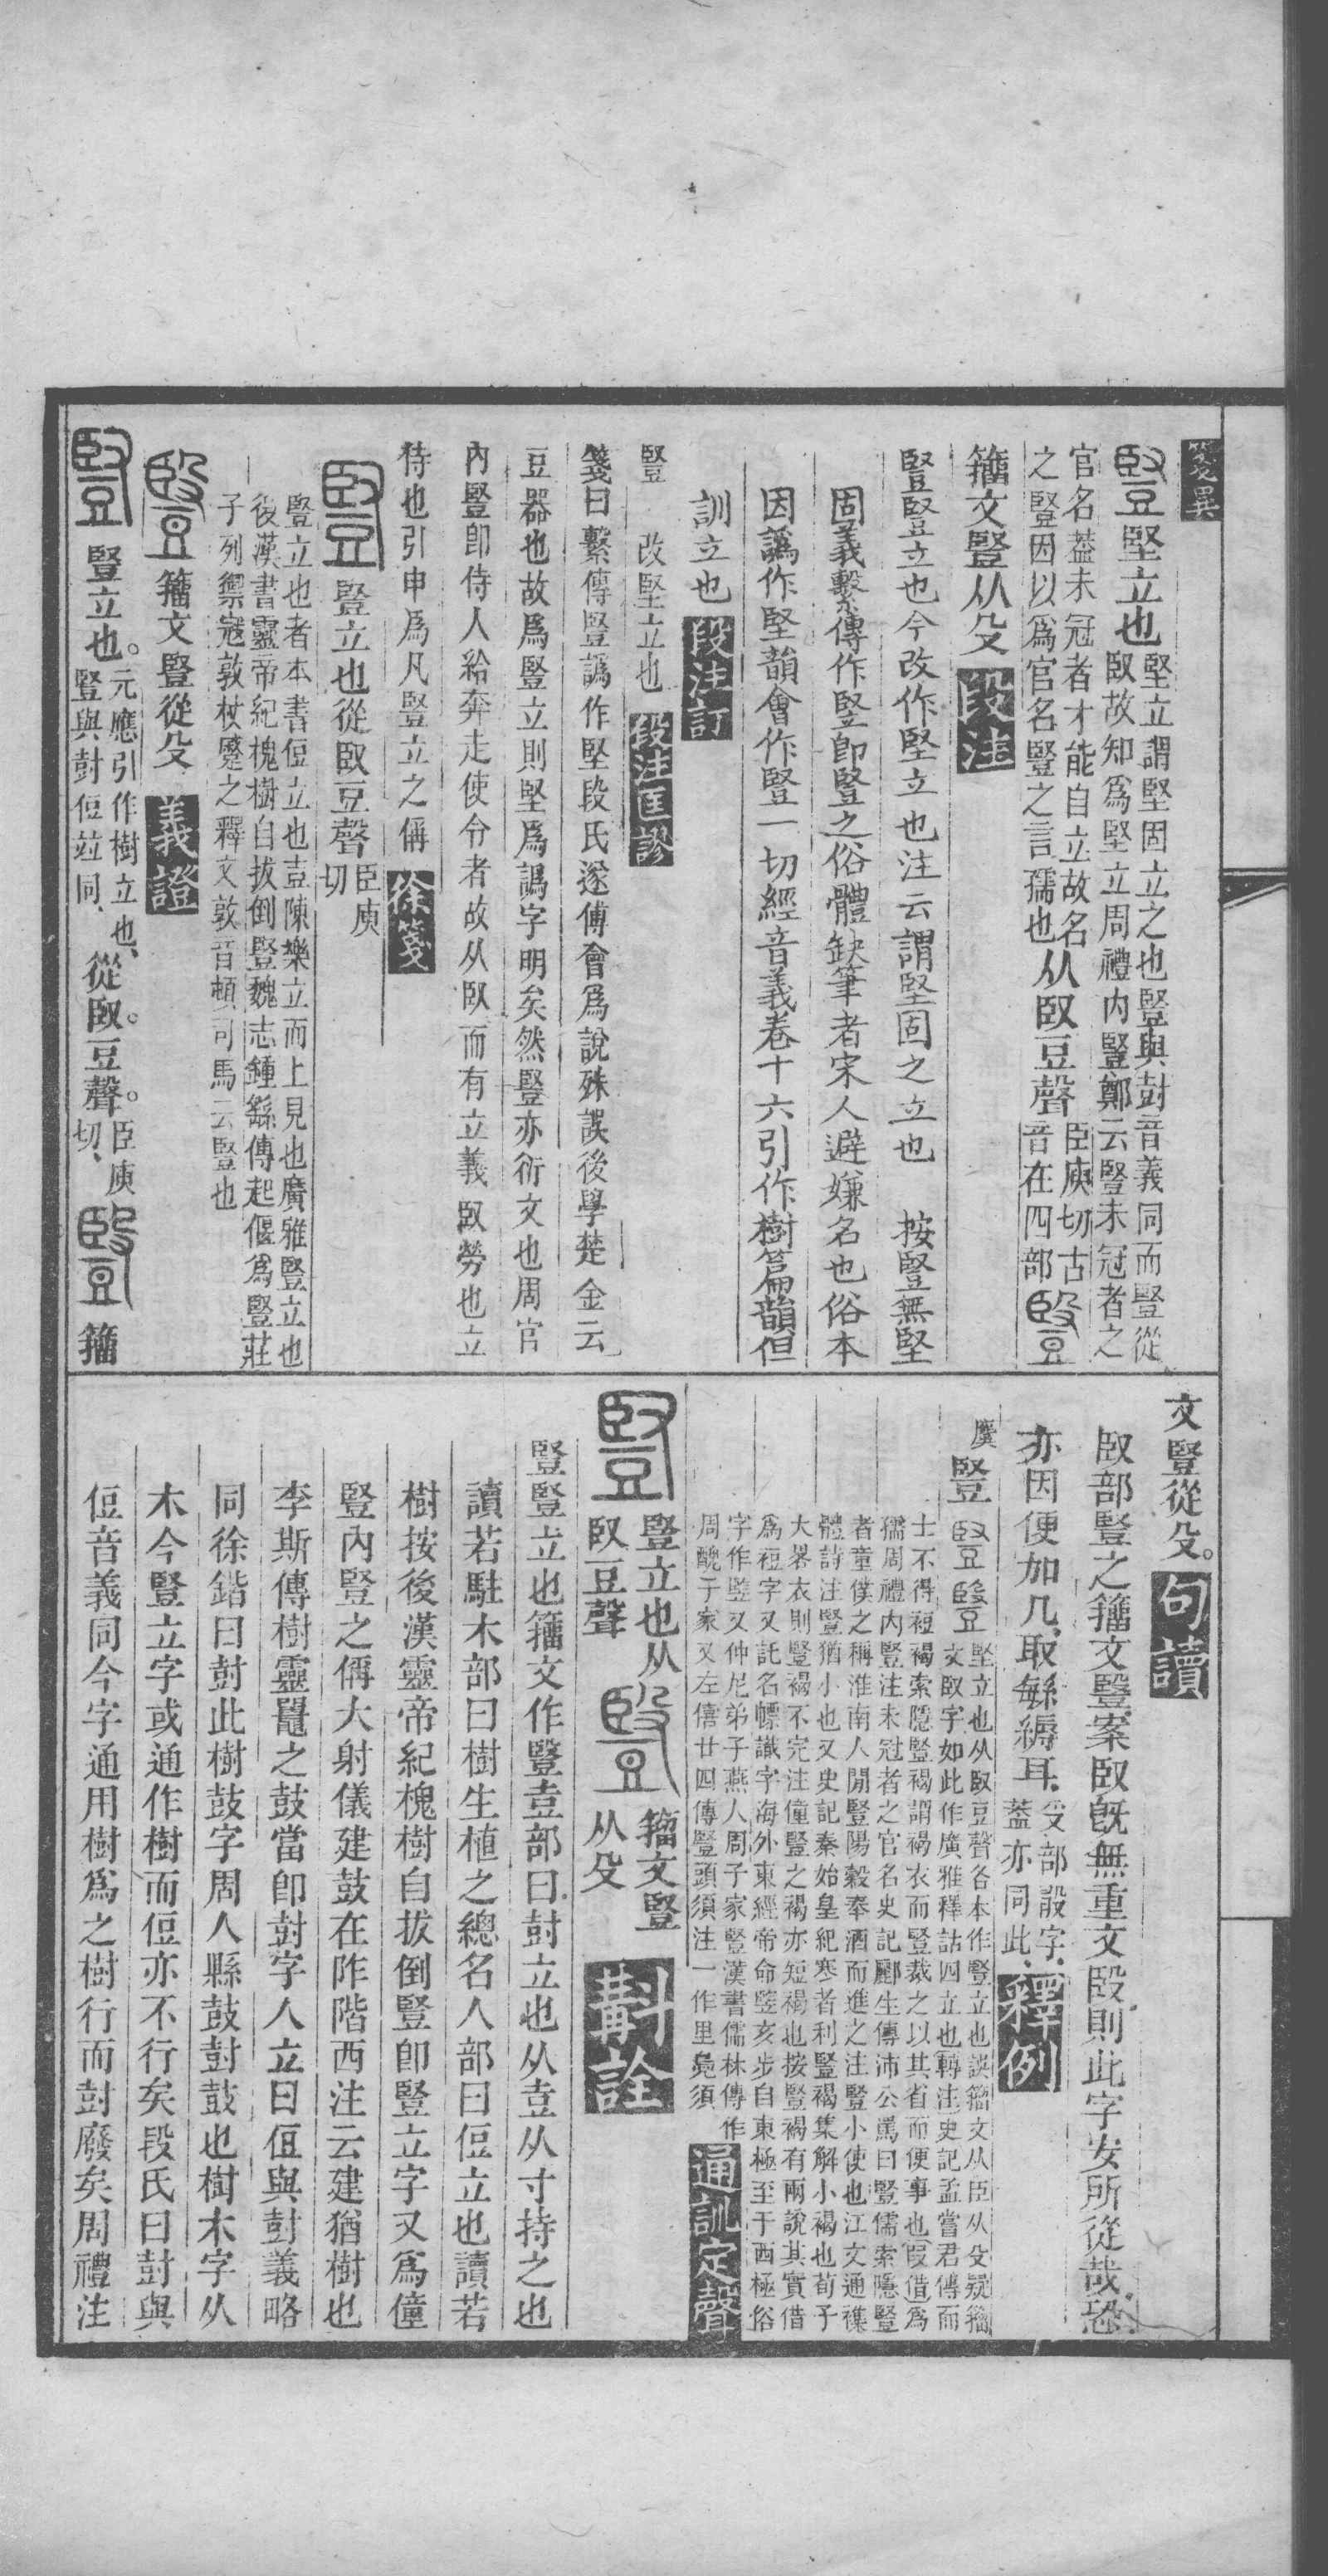 箋異
豎堅立也堅立謂堅固立之也豎與尌音義同而豎從
臤故知爲堅立周禮內豎鄭云豎未冠者之
官名葢未冠者才能自立故名
之豎因以爲官名豎之言孺也从臤豆聲臣庾切古
音在四部豎
籒文豎从殳段注
豎豎立也今改作堅立也注云謂堅固之立也 按豎無堅
固義繫傳作竪卽豎之俗體缺筆者宋人避嫌名也俗本
因譌作堅韻會作豎一切經音義卷十六引作樹篇韻但
訓立也段注訂
豎 改堅立也段注匡謬
箋曰繫傳豎譌作堅段氏遂傅會爲說殊誤後學楚金云
豆器也故爲豎立則堅爲譌字明矣然豎亦衍文也周官
內豎卽侍人給奔走使令者故从臤而有立義臤勞也立
待也引申爲凡豎立之偁徐箋
豎豎立也從臤豆聲臣庾
切
豎立也者本書侸立也壴陳樂立而上見也廣雅豎立也
後漢書靈帝紀槐樹自拔倒豎魏志鍾繇傳起偃爲豎莊
子列禦寇敦杖蹙之釋文敦音頓司馬云豎也
豎籒文豎從殳義證
豎豎立也。元應引作樹立也、
豎與尌侸竝同、從臤。豆聲。臣庾
切、豎籒
文豎從殳。句讀
臤部豎之籒文豎、案臤旣無重文臤則此字安所從哉、恐
亦因便加几、取緐縟耳、殳部毄字、
葢亦同此、釋例
虞豎豎豎堅立也从臤豆聲各本作豎立也誤籒文从臣从殳疑籒
文臤字如此作廣雅釋詁四立也轉注史記孟嘗君傳而
士不得裋褐索隱豎褐謂褐衣而豎裁之以其省而便事也叚借爲
孺周禮內豎注未冠者之官名史記酈生傳沛公罵曰豎儒索隱豎
者童僕之稱淮南人閒豎陽穀奉酒而進之注豎小使也江文通襍
體詩注豎猶小也又史記秦始皇紀寒者利豎褐集解小褐也荀子
大畧衣則豎褐不完注僮豎之褐亦短褐也按豎褐有兩說其實借
爲裋字又託名幖識字海外東經帝命竪亥步自東極至于西極俗
字作竪又仲尼弟子燕人周子家豎漢書儒林傳作
周醜子家又左僖廿四傳豎頭須注一作里鳧須通訓定聲
豎豎立也从
臤豆聲豎籒文豎
从殳斠詮
豎豎立也籒文作豎壴部曰尌立也从壴从寸持之也
讀若駐木部曰樹生植之總名人部曰侸立也讀若
樹按後漢靈帝紀槐樹自拔倒豎卽豎立字又爲僮
豎內豎之偁大射儀建鼓在阼階西注云建猶樹也
李斯傳樹靈鼉之鼓當卽尌字人立曰侸與尌義略
同徐鍇曰尌此樹鼓字周人縣鼓尌鼓也樹木字从
木今豎立字或通作樹而侸亦不行矣段氏曰尌與
侸音義同今字通用樹爲之樹行而尌廢矣周禮注